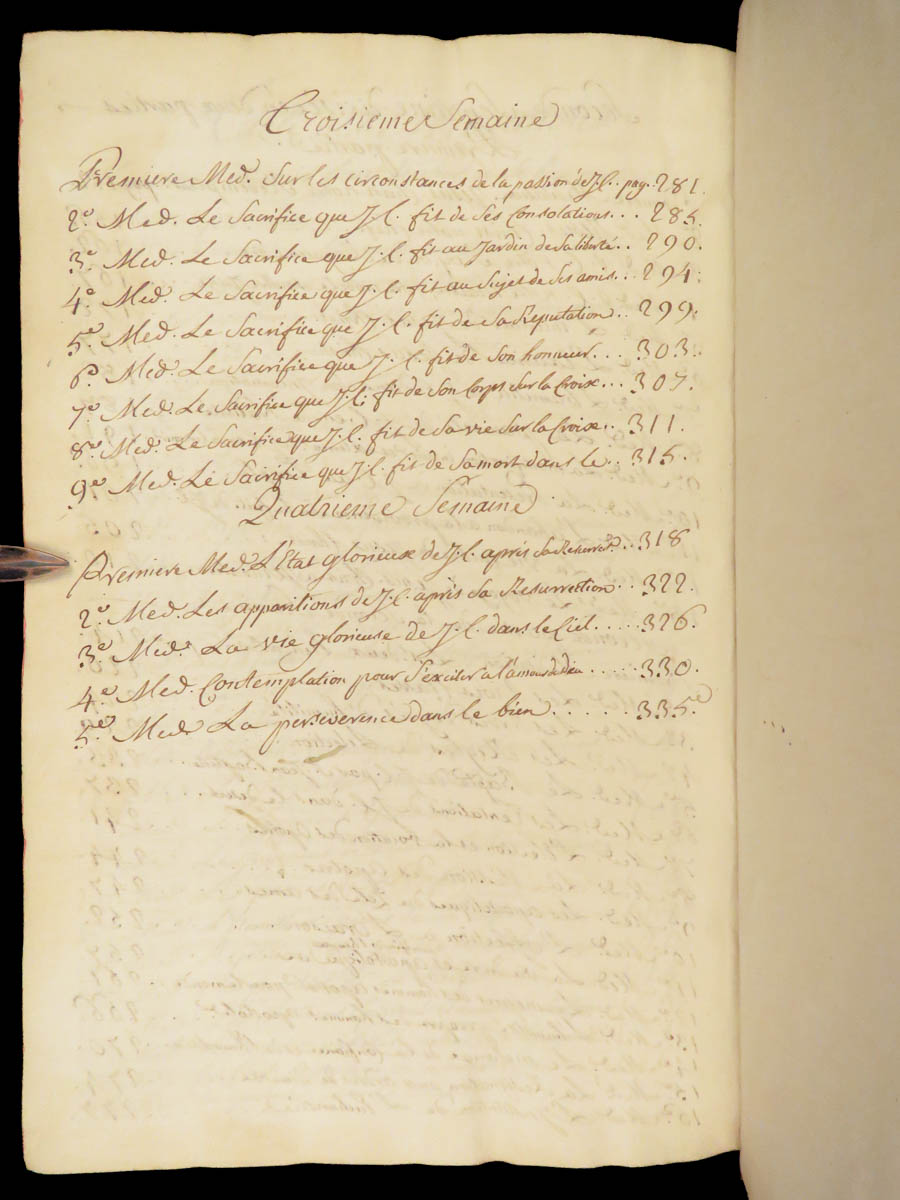 Troisieme Semaine
Premiere Med. Sur les circonstances de la passion de J. C. pag. 281.
2e Med. Le Sacrifice que J. C. fit de Ses Consolations... 285.
3e. Med. Le Sacrifice que J. C. fit au Jardin de Sa liberté.. 290.
4e Med. Le Sacrifice que J. C. fit au Sujet de Ses amis... 294.
5e Med. Le Sacrifice que J. C. fit de Sa Reputation.. 299.
6e Med. Le Sacrifice que J. C. fit de Son honneur... 303.
7e Med. Le Sacrifice que J. C. fit de Son Corps Sur la Croix... 307.
8e Med. Le Sacrifice que J. C. fit de Sa vie Sur la Croix.. 311.
9e Med. Le Sacrifice que J. C. fit de Sa mort dans le.. 315.
Quatrieme Semaine
Premiere Med. L'Etat glorieux de J. C. après Sa Resurrect... 318
2e Med. Les apparitions de J. C. après Sa Resurrection.. 322.
3e Med. La vie glorieuse de J. C. dans le Ciel..... 326.
4e Med. Contemplation pour S'exciter a l'amour de dieu..... 330.
5e Med. La perseverence dans le bien...... 335.